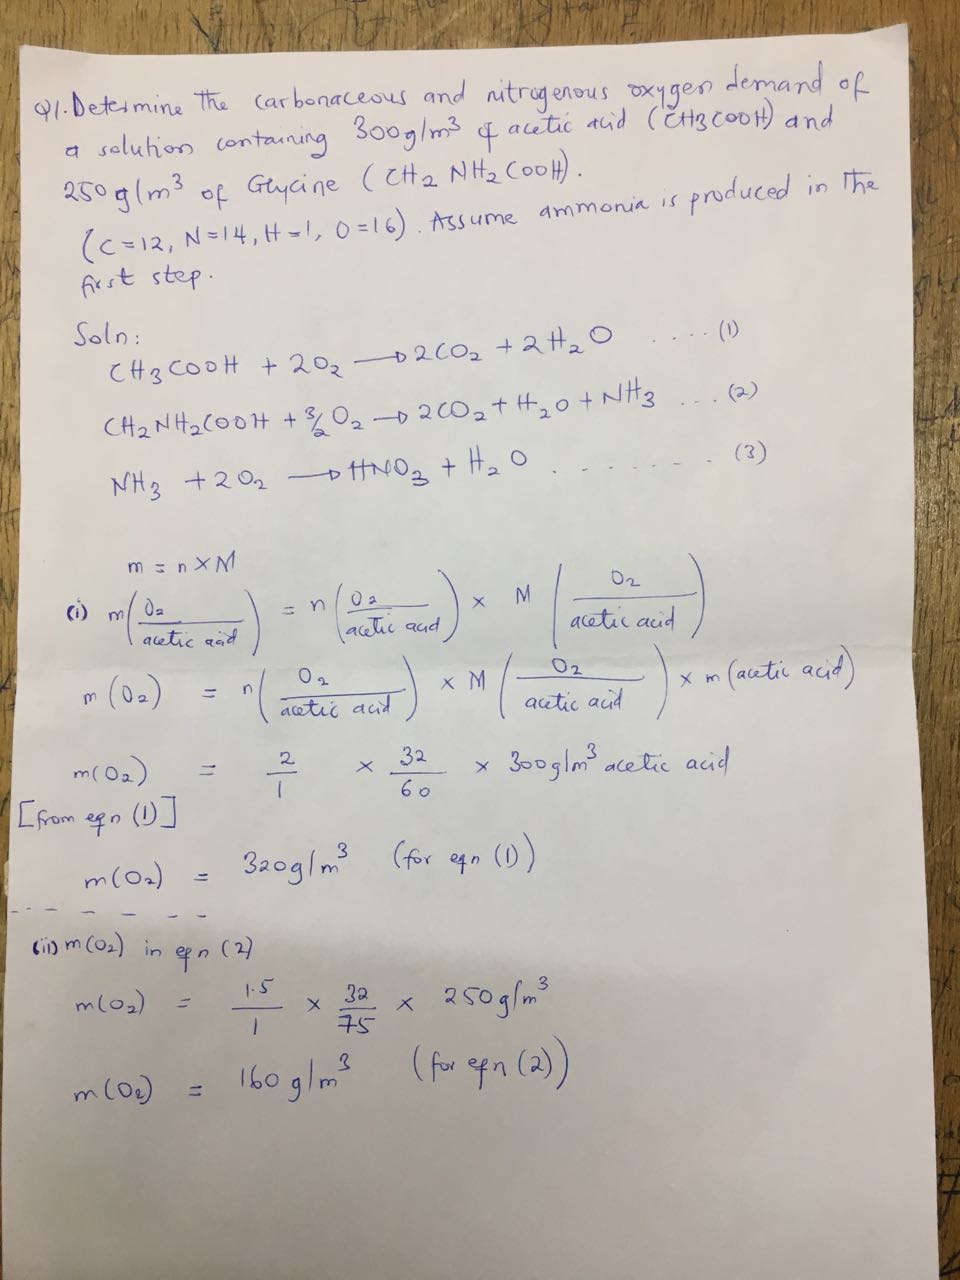 Q1. Determine the carbonaceous and nitrogenous oxygen demand of
a solution containing 300g/m³ of acetic acid (CH3COOH) and
250g/m³ of Glycine (CH2 NH2 COOH).
(C=12, N=14, H=1, O=16). Assume ammonia is produced in the
first step.
Soln:
CH3COOH + 2O2 → 2CO2 + 2H2O ..... (1)
CH2NH2COOH + 3/2 O2 → 2CO2 + H2O + NH3 ... (2)
NH3 + 2O2 → HNO3 + H2O ........ (3)
m = n × M
(i) m(O2/acetic acid) = n(O2/acetic acid) × M(O2/acetic acid)
m(O2) = n(O2/acetic acid) × M(O2/acetic acid) × m(acetic acid)
m(O2) = 2/1 × 32/60 × 300g/m³ acetic acid
[from eqn (1)]
m(O2) = 320g/m³ (for eqn (1))
(ii) m(O2) in eqn (2)
m(O2) = 1.5/1 × 32/75 × 250g/m³
m(O2) = 160 g/m³ (for eqn (2))